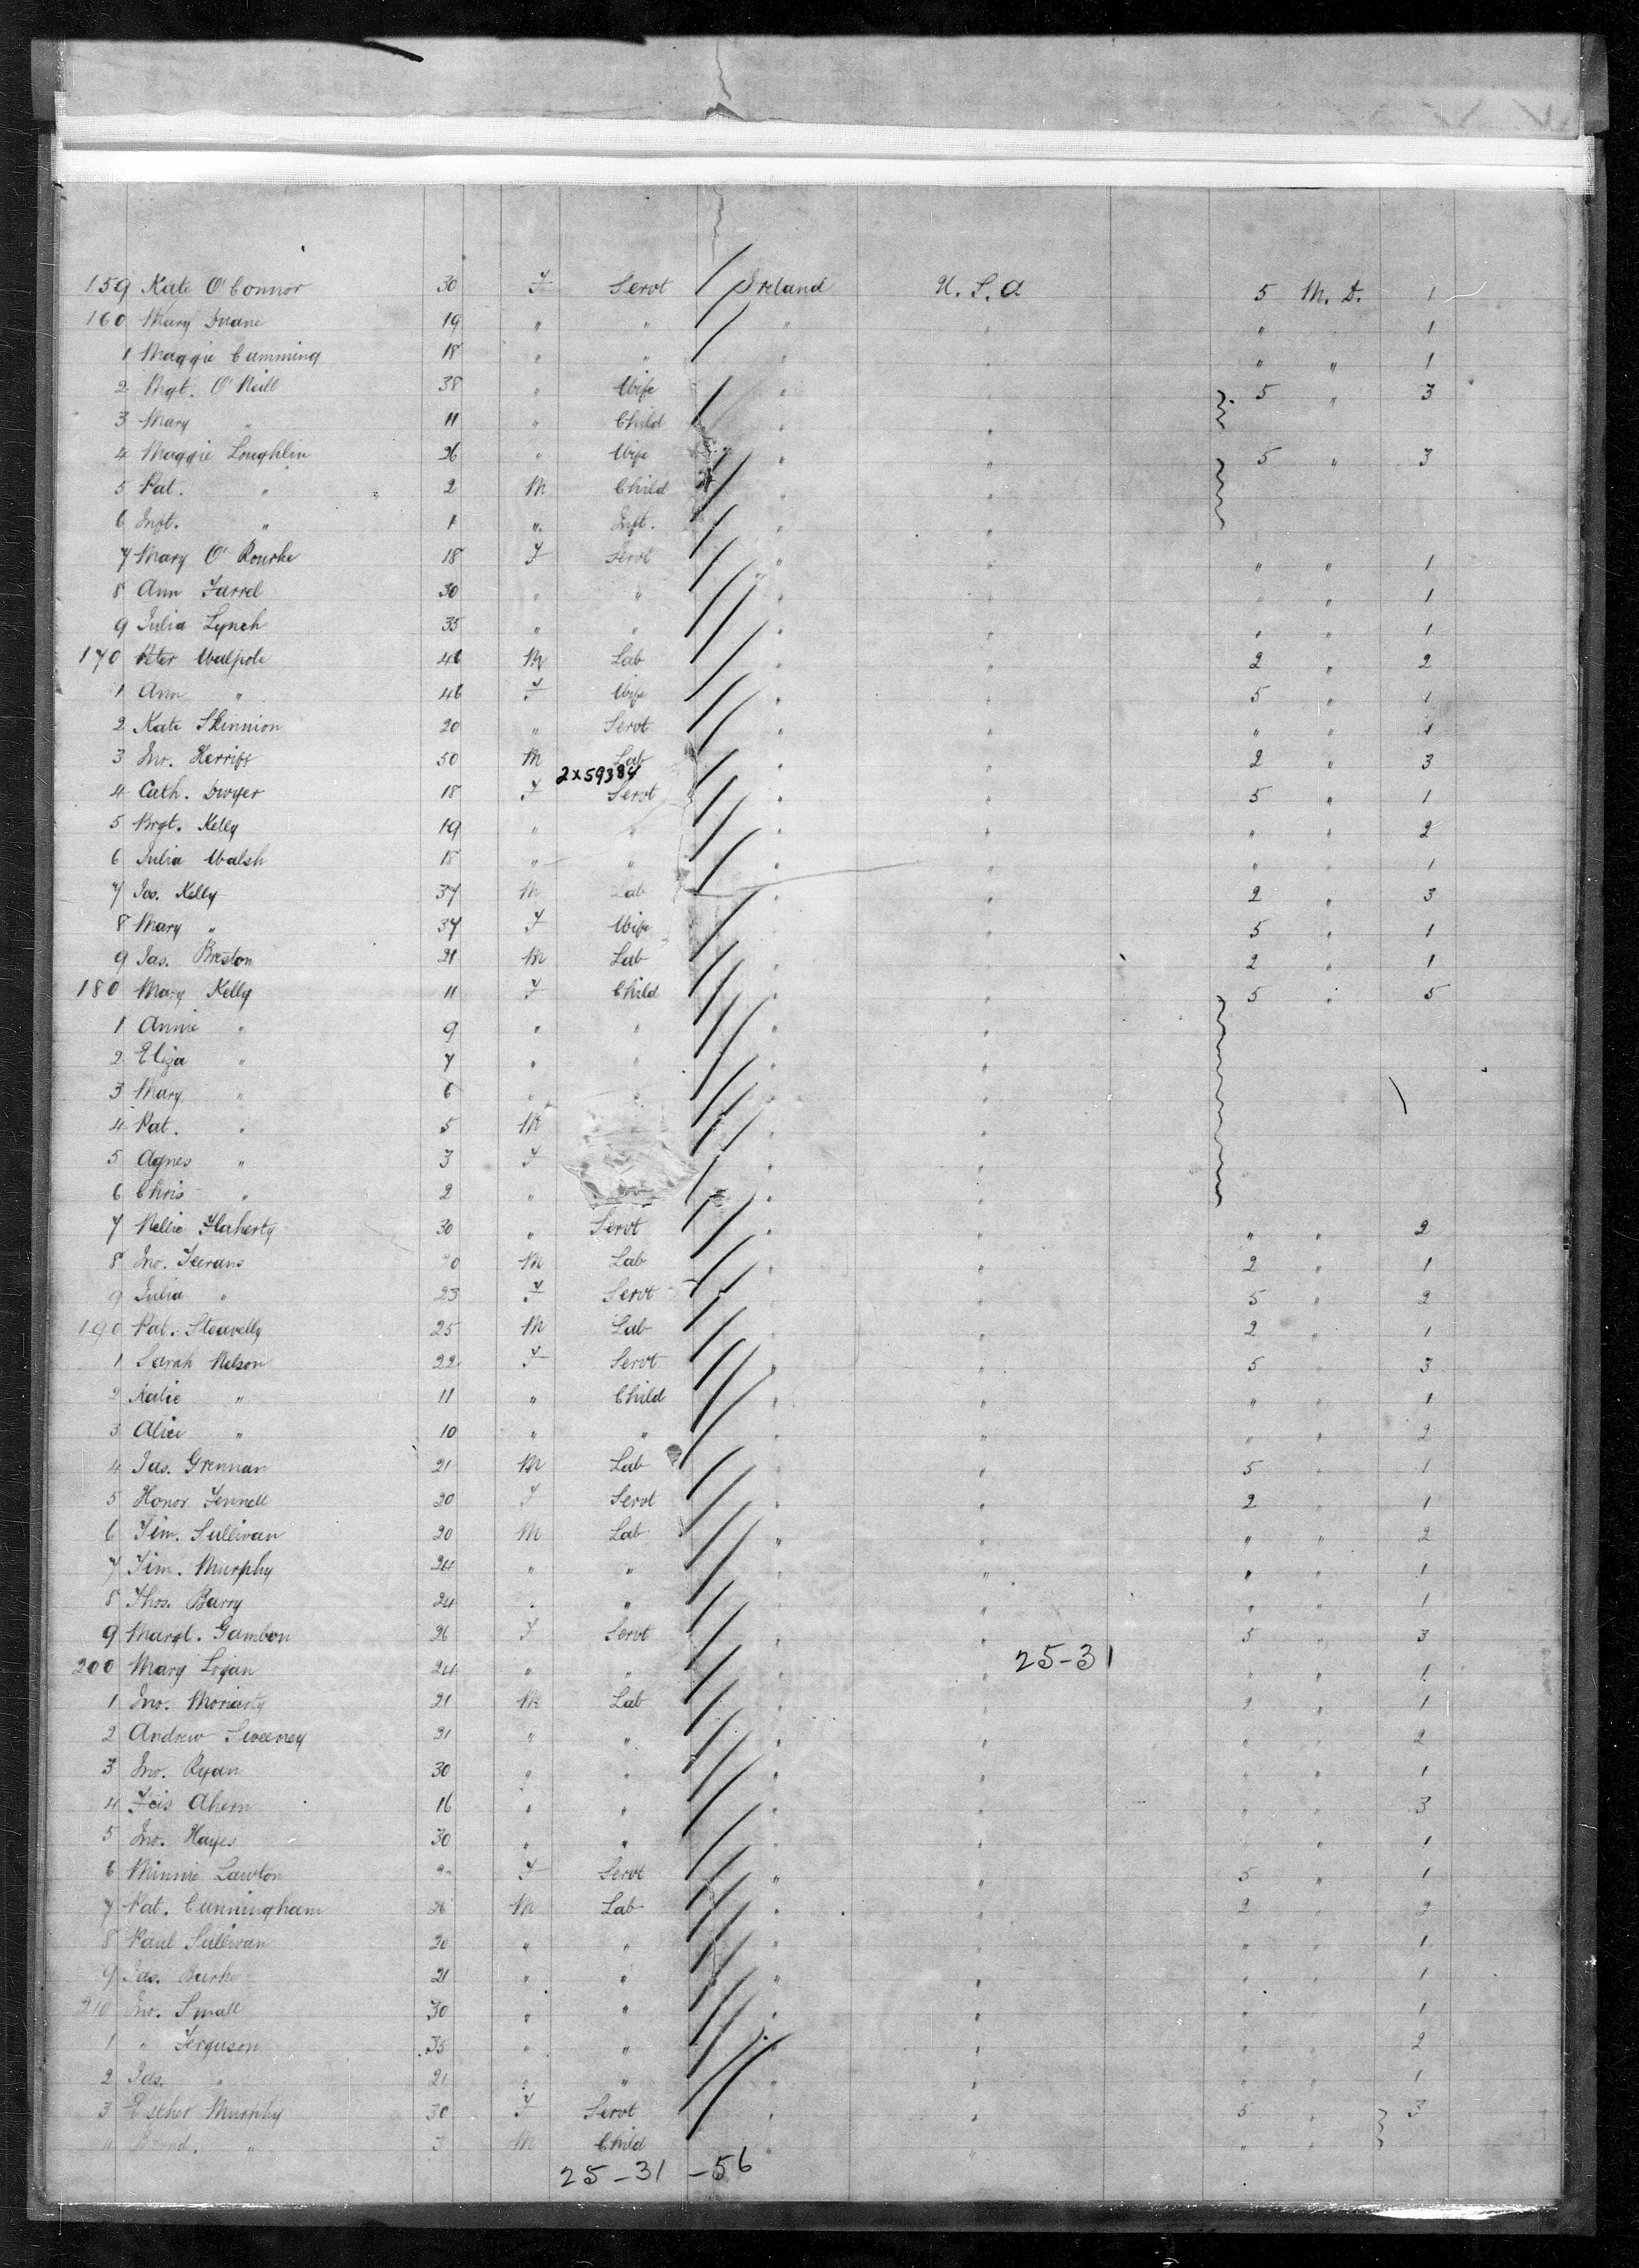 159 Kate O'Connor 30 F Servt Ireland U.S.A 5 M. D. 1
160 Mary Duane 19 " " " " " 1
1 Maggie Cumming 18 " " " " " " 1
2 Mgt. O'Neill 38 " Wife " " 5 " 3
3 Mary " 11 " Child " "
4 Maggie Loughlin 26 " Wife " " 5 " 3
5 Pat. " 2 M Child " "
6 Inft. " 1 " Inft. " "
7 Mary O'Rourke 18 F Servt " " " " 1
8 Ann Farrel 30 " " " " " " 1
9 Julia Lynch 35 " " " " " " 1
170 Peter Walpole 46 M Lab " " 2 " 2
1 Ann " 46 F Wife " " 5 " 1
2 Kate Skinnion 20 " Servt " " " " 1
3 Jno. 50 M Lab " " 2 " 3
2x59384
4 Cath. Dwyer 18 F Servt " " 5 " 1
5 Brgt. Kelly 19 " " " " " " 2
6 Julia Walsh 18 " " " " " " 1
7 Jas. Kelly 37 M Lab " " 2 " 3
8 Mary " 37 F Wife " " 5 " 1
9 Jas. Breston 21 M Lab " " 2 " 1
180 Mary Kelly 11 F Child " " 5 " 5
1 Annie " 9 " " " "
2 Eliza " 7 " " " "
3 Mary " 6 " " " "
4 Pat. " 5 M " "
5 Agnes " 3 F " "
6 Chris " 2 " " "
7 Nellie Flaherty 30 " Servt " " " " 2
8 Jno. Feerans M Lab " " 2 " 1
9 Julia " 23 F Servt " " 5 " 2
190 Pat. Steavelly 25 M Lab " " 2 " 1
1 Sarah Nelson 22 F Servt " " 5 " 3
2 Katie " 11 " Child " " " " 1
3 Alice " 10 " " " " " " 2
4 Jas. Grennan 21 M Lab " " 5 " 1
5 Honor Fennell 20 F Servt " " 2 " 1
6 Tim. Sullivan 20 M Lab " " " " 2
7 Tim. Murphy 24 " " " " " " 1
8 Thos. Barry 24 " " " " " " 1
9 Margt. Gambon 26 F Servt " " 5 " 3
200 Mary Logan 24 " " " " 25-31 " " 1
1 Jno. Moriarty 21 M Lab " " 2 " 1
2 Andrew Sweeney 21 " " " " " " 2
3 Jno. Ryan 30 " " " " " " 1
4 Fcis Ahern 16 " " " " " " 3
5 Jno. Hayes 30 " " " " " " 1
6 Minnie Lawton F Servt " " 5 " 1
7 Pat. Cunningham 26 M Lab " " 2 " 2
8 Paul Sullivan 20 " " " " " " 1
9 Jas. Burke 21 " " " " " " 1
210 Jno. Small 30 " " " " " " 1
1 " Ferguson 35 " " " " " " 2
2 Jas. " 21 " " " " " " 1
3 Esther Murphy 30 F Servt " " 5 " 3
4 " 3 M Child " " " "
25-31 -56